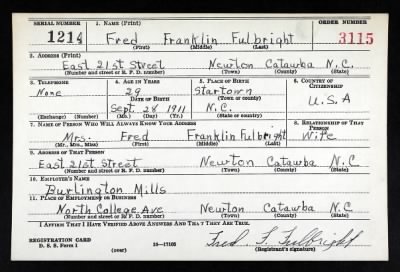 SERIAL NUMBER 1. NAME (Print) ORDER NUMBER
1214 Fred Franklin Fulbright 3115
(First) (Middle) (Last)
2. ADDRESS (Print)
East 21st Street Newton Catawba N.C.
(Number and street or R. F. D. number) (Town) (County) (State)
3. TELEPHONE 4. AGE IN YEARS 5. PLACE OF BIRTH 6. COUNTRY OF CITIZENSHIP
None 29 Startown
DATE OF BIRTH (Town or county)
Sept. 28 1911 N.C. U.S.A
(Exchange) (Number) (Mo.) (Day) (Yr.) (State or country)
7. NAME OF PERSON WHO WILL ALWAYS KNOW YOUR ADDRESS 8. RELATIONSHIP OF THAT PERSON
Mrs. Fred Franklin Fulbright Wife
(Mr., Mrs., Miss) (First) (Middle) (Last)
9. ADDRESS OF THAT PERSON
East 21st Street Newton Catawba N.C
(Number and street or R. F. D. number) (Town) (County) (State)
10. EMPLOYER'S NAME
Burlington Mills
11. PLACE OF EMPLOYMENT OR BUSINESS
North College Ave Newton Catawba N.C
(Number and street or R. F. D. number) (Town) (County) (State)
I AFFIRM THAT I HAVE VERIFIED ABOVE ANSWERS AND THAT THEY ARE TRUE.
REGISTRATION CARD
D. S. S. Form 1 (over) 16-17105 Fred F. Fulbright
(Registrant's signature)